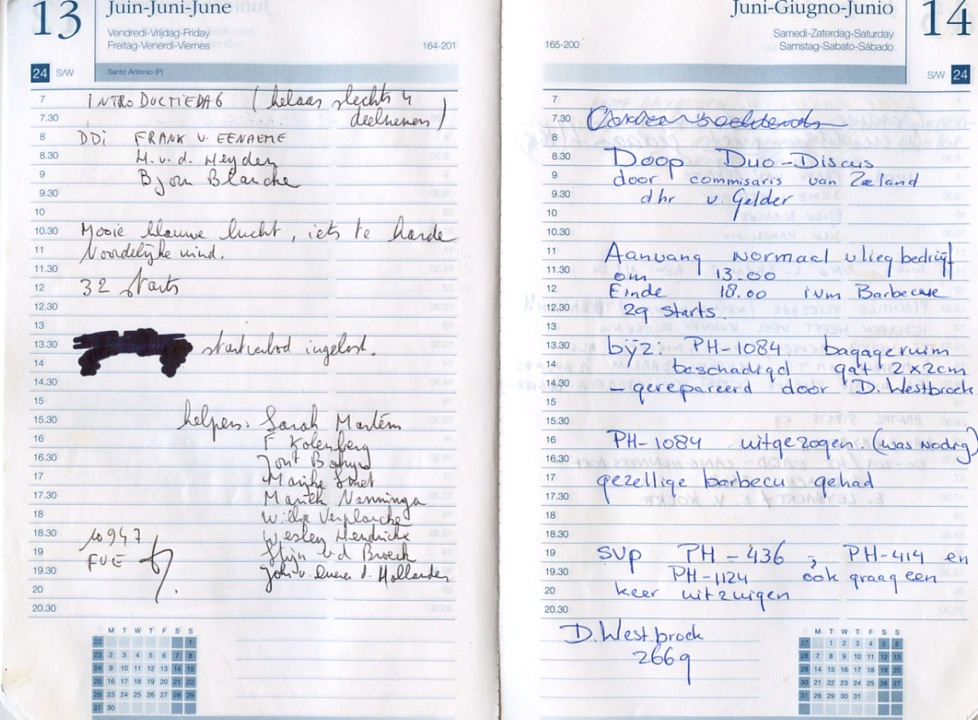 13
Juin-Juni-June
Vendredi-Vrijdag-Friday
Freitag-Venerdi-Viernes
164-201
24 S/W
Santo Antonio (P)
7 INTRODUCTIEDAG (helaas slechts 4
7.30 deelnemers)
8 DDI FRANK v. EENAEME
8.30 M. v. d. Heyden
9 Bjorn Blanche
9.30
10
10.30 Mooie blauwe lucht, iets te harde
11 Noordelijke wind.
11.30
12 32 starts
12.30
13
13.30 startverbod ingelost.
14
14.30
15
15.30 helpen: Sarah Martens
16 F Kolenberg
16.30
17 Marijke Smet
17.30 Marith Nanninga
18 Wiltje Verplancke
18.30 10947 Wesley Hendrickx
19 FUE Stijn vd Broeck
19.30 Hollander
20
20.30
M T W T F S S
22 1
23 2 3 4 5 6 7 8
24 9 10 11 12 13 14 15
25 16 17 18 19 20 21 22
26 23 24 25 26 27 28 29
27 30
Juni-Giugno-Junio
14
Samedi-Zaterdag-Saturday
Samstag-Sabato-Sábado
165-200
S/W 24
7
7.30
8
8.30 Doop Duo-Discus
9 door commisaris van Zeeland
9.30 dhr v. Gelder
10
10.30
11 Aanvang normaal vliegbedrijf
11.30 om 13.00
12 Einde 18.00 ivm Barbecue
12.30 29 starts.
13
13.30 bijz: PH-1084 bagageruim
14 beschadigd gat 2x2cm
14.30 - gerepareerd door D. Westbroek
15
15.30
16 PH-1084 uitgezogen. (was nodig)
16.30
17 gezellige barbecu gehad
17.30
18
18.30
19 SVP PH-436, PH-414 en
19.30 PH-1124 ook graag een
20 keer uitzuigen
20.30
D. Westbroek
2669
M T W T F S S
27 1 2 3 4 5 6
28 7 8 9 10 11 12 13
29 14 15 16 17 18 19 20
30 21 22 23 24 25 26 27
31 28 29 30 31